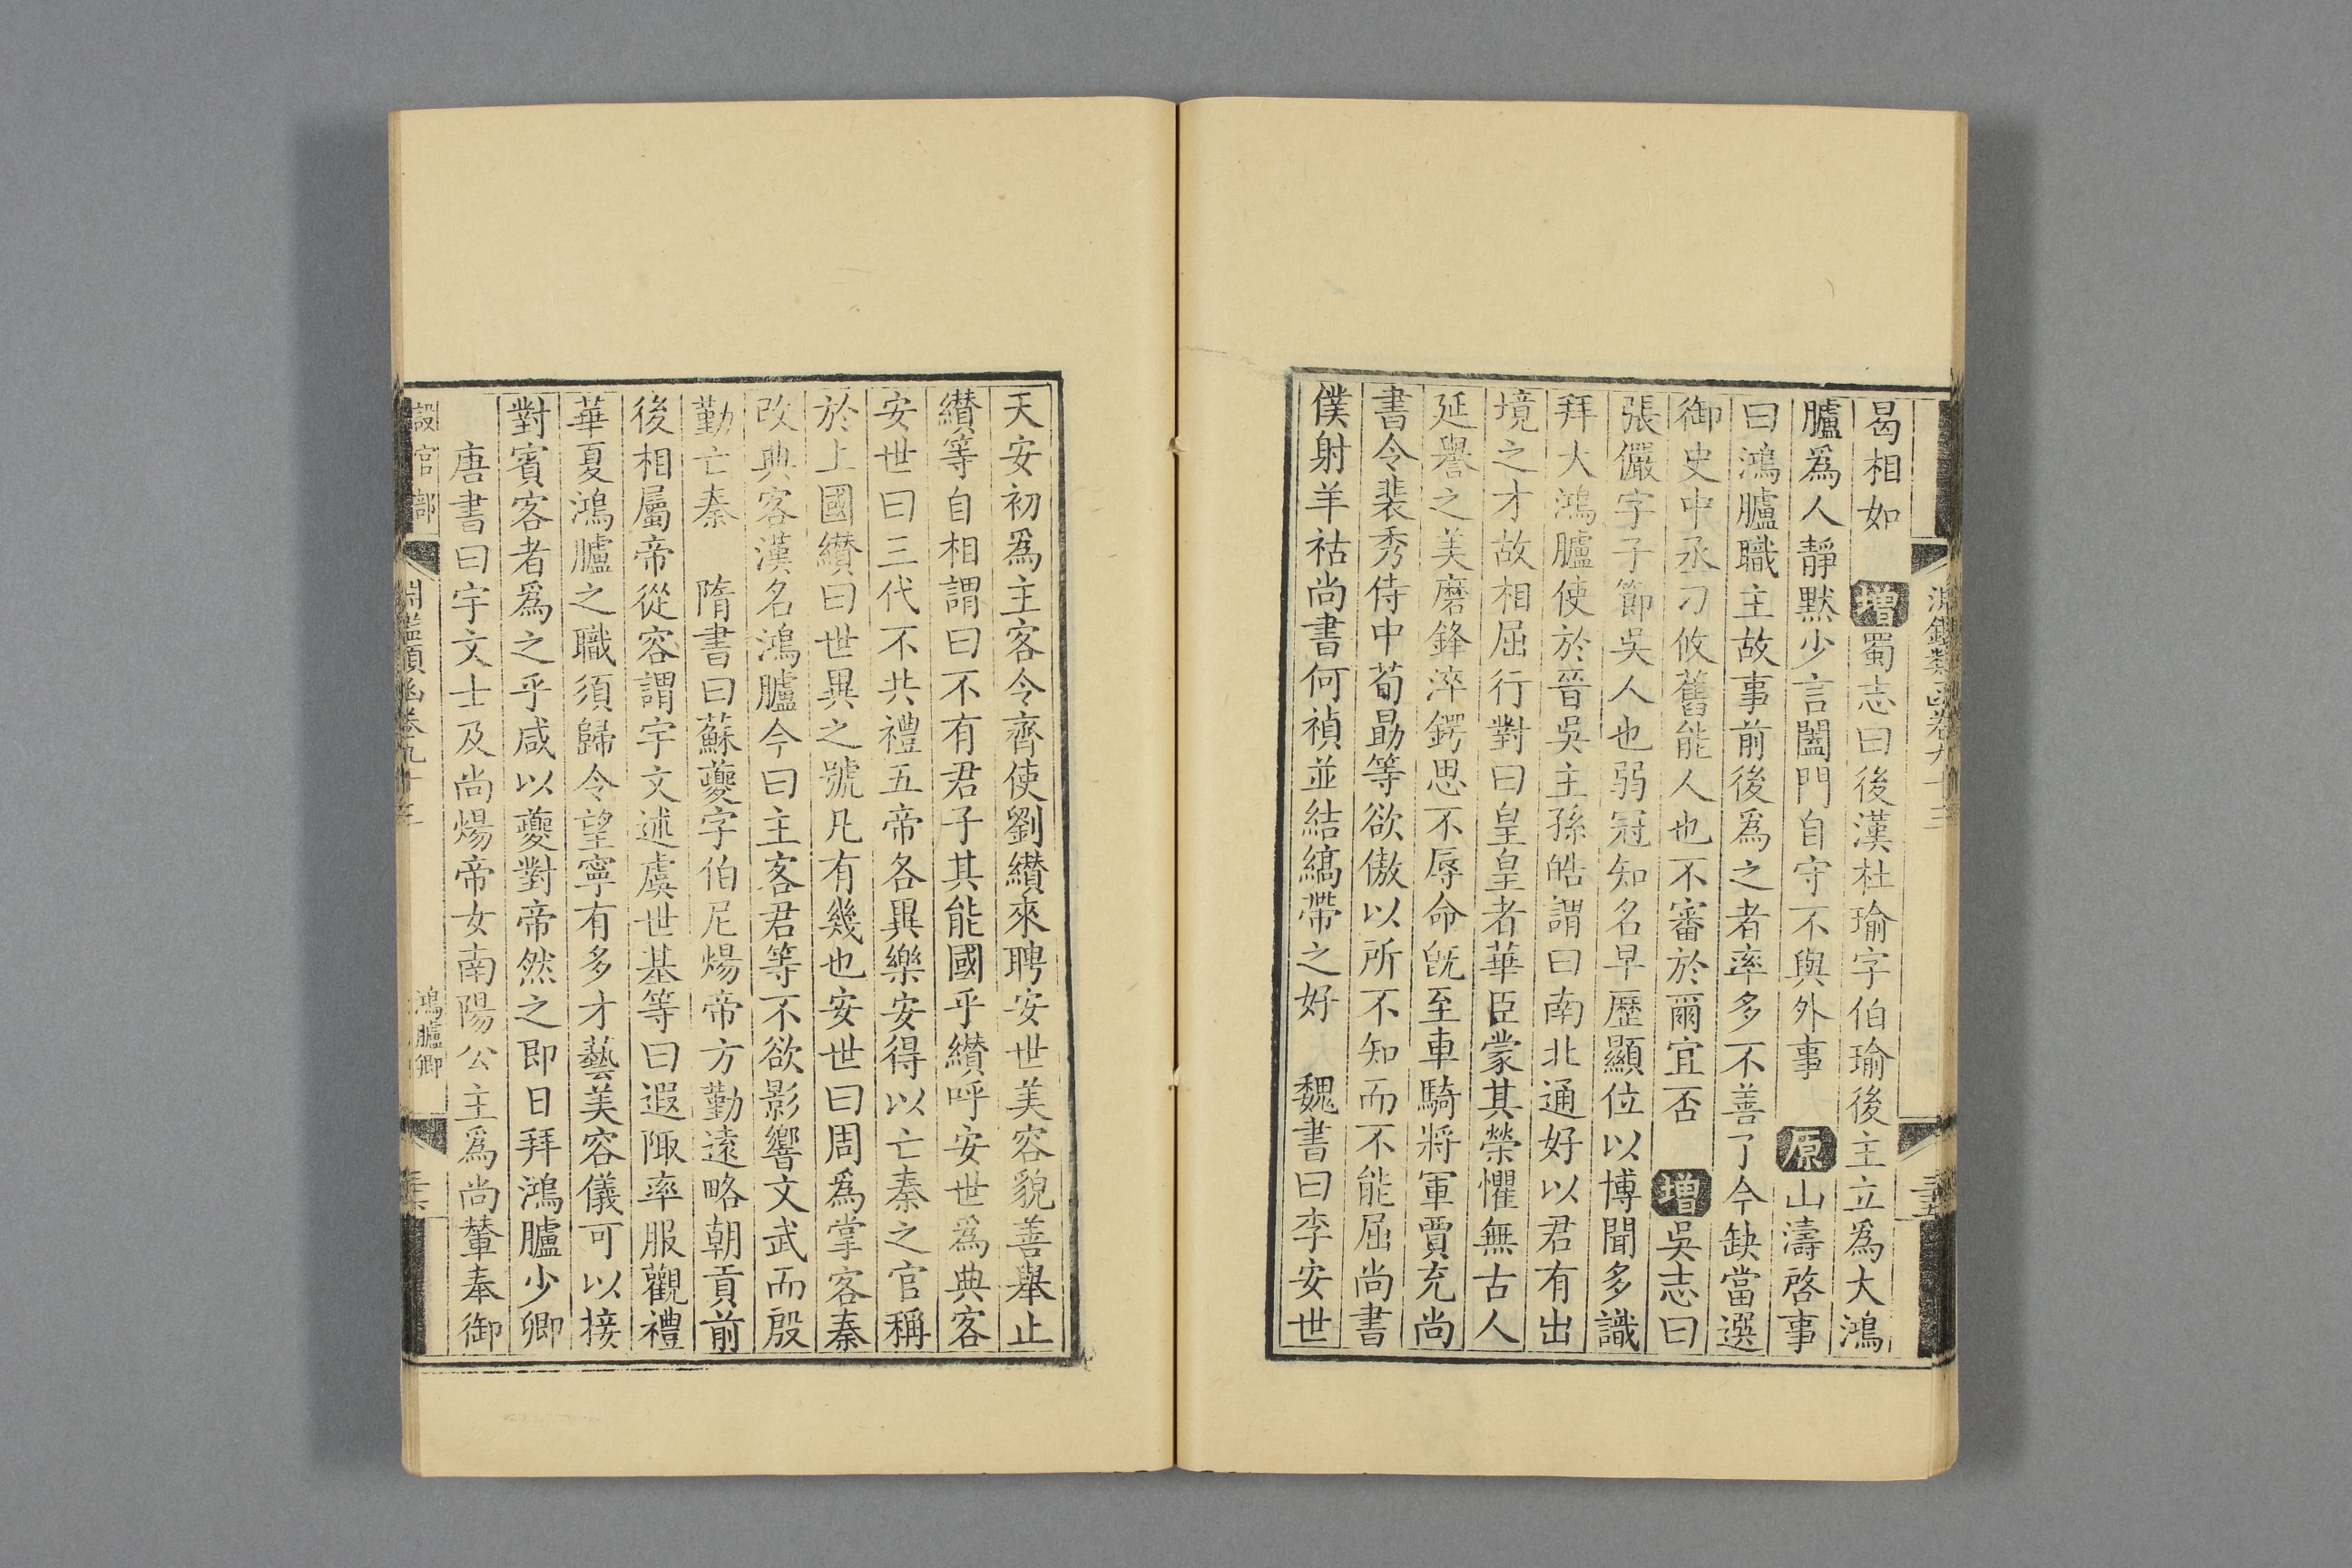 曷相如　增蜀志曰後漢杜瑜字伯瑜後主立爲大鴻
臚爲人靜默少言闔門自守不與外事　原山濤啓事
曰鴻臚職主故事前後爲之者率多不善了今缺當選
御史中丞刁攸舊能人也不審於爾宜否　增吳志曰
張儼字子節吳人也弱冠知名早歷顯位以博聞多識
拜大鴻臚使於晉吳主孫皓謂曰南北通好以君有出
境之才故相屈行對曰皇皇者華臣蒙其榮懼無古人
延譽之美磨鋒淬鍔思不辱命旣至車騎將軍賈充尚
書令裴秀侍中荀勗等欲傲以所不知而不能屈尚書
僕射羊祜尚書何禎並結縞帶之好　魏書曰李安世
天安初爲主客令齊使劉纘來聘安世美容貌善舉止
纘等自相謂曰不有君子其能國乎纘呼安世爲典客
安世曰三代不共禮五帝各異樂安得以亡秦之官稱
於上國纘曰世異之號凡有幾也安世曰周爲掌客秦
改典客漢名鴻臚今曰主客君等不欲影響文武而殷
勤亡秦　隋書曰蘇夔字伯尼煬帝方勤遠略朝貢前
後相屬帝從容謂宇文述虞世基等曰遐陬率服觀禮
華夏鴻臚之職須歸令望寧有多才藝美容儀可以接
對賓客者爲之乎咸以夔對帝然之即日拜鴻臚少卿
唐書曰宇文士及尚煬帝女南陽公主爲尚輦奉御
設官部
淵鑑類函卷九十三
鴻臚卿